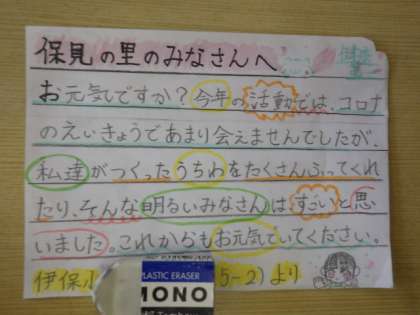 保見の里のみなさんへ
お元気ですか？今年の活動では、コロナ
のえいきょうであまり会えませんでしたが、
私達がつくったうちわをたくさんふってくれ
たり、そんな明るいみなさんは、すごいと思
いました。これからもお元気でいてください。
伊保小 5-2）より
PLASTIC ERASER
MONO